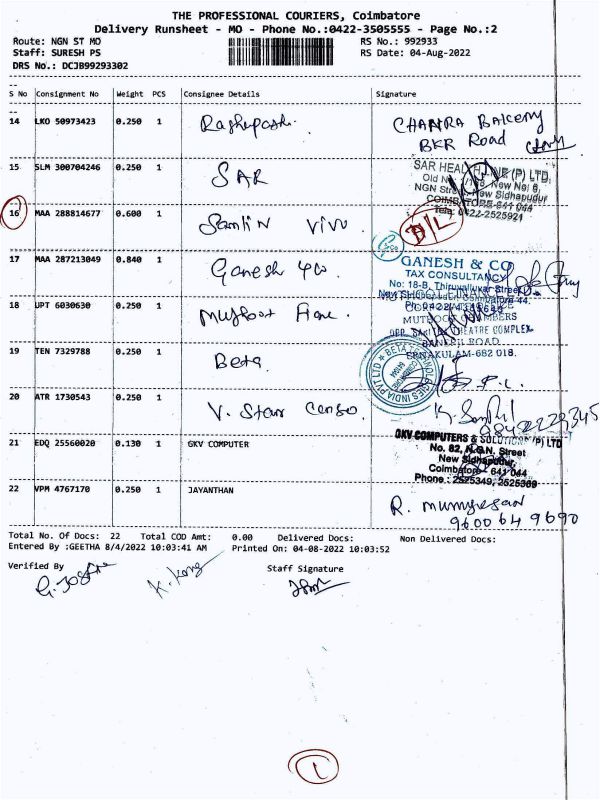 THE PROFESSIONAL COURIERS, Coimbatore
Delivery Runsheet - MO - Phone No.:0422-3505555 - Page No.:2
Route: NGN ST MO
RS No.: 992933
Staff: SURESH PS
RS Date: 04-Aug-2022
DRS No.: DCJB99293302
S No Consignment No Weight PCS Consignee Details Signature
14 LKO 50973423 0.250 1
CHANRA
BKR Road
15 SLM 300704246 0.250 1 SAR
NGN Street, New Sidhapudur
COIMBATORE-641 044
Tele: 0422-2525921
16 MAA 288814677 0.600 1 Samlin vivu
D/L
17 MAA 287213049 0.840 1 Ganesh &co
GANESH & CO
TAX CONSULTANCY
No: 18-B, Thiruvalluvar Street
18 UPT 6030630 0.250 1
OPP. THEATRE COMPLEX
ERNAKULAM-682 018.
19 TEN 7329788 0.250 1 Beta
BETA TECHNOLOGIES INDIA PVT LTD
20 ATR 1730543 0.250 1 V. Star
21 EDQ 25560020 0.130 1 GKV COMPUTER
GKV COMPUTERS & SOLUTIONS (P) LTD
No. 82, N.G.N. Street
New Sidhapudur,
Coimbatore - 641 044
Phone : 2525349, 2525369
22 VPM 4767170 0.250 1 JAYANTHAN
R. Murugesan
9600649690
Total No. Of Docs: 22 Total COD Amt: 0.00 Delivered Docs: Non Delivered Docs:
Entered By :GEETHA 8/4/2022 10:03:41 AM Printed On: 04-08-2022 10:03:52
Verified By
Staff Signature
L